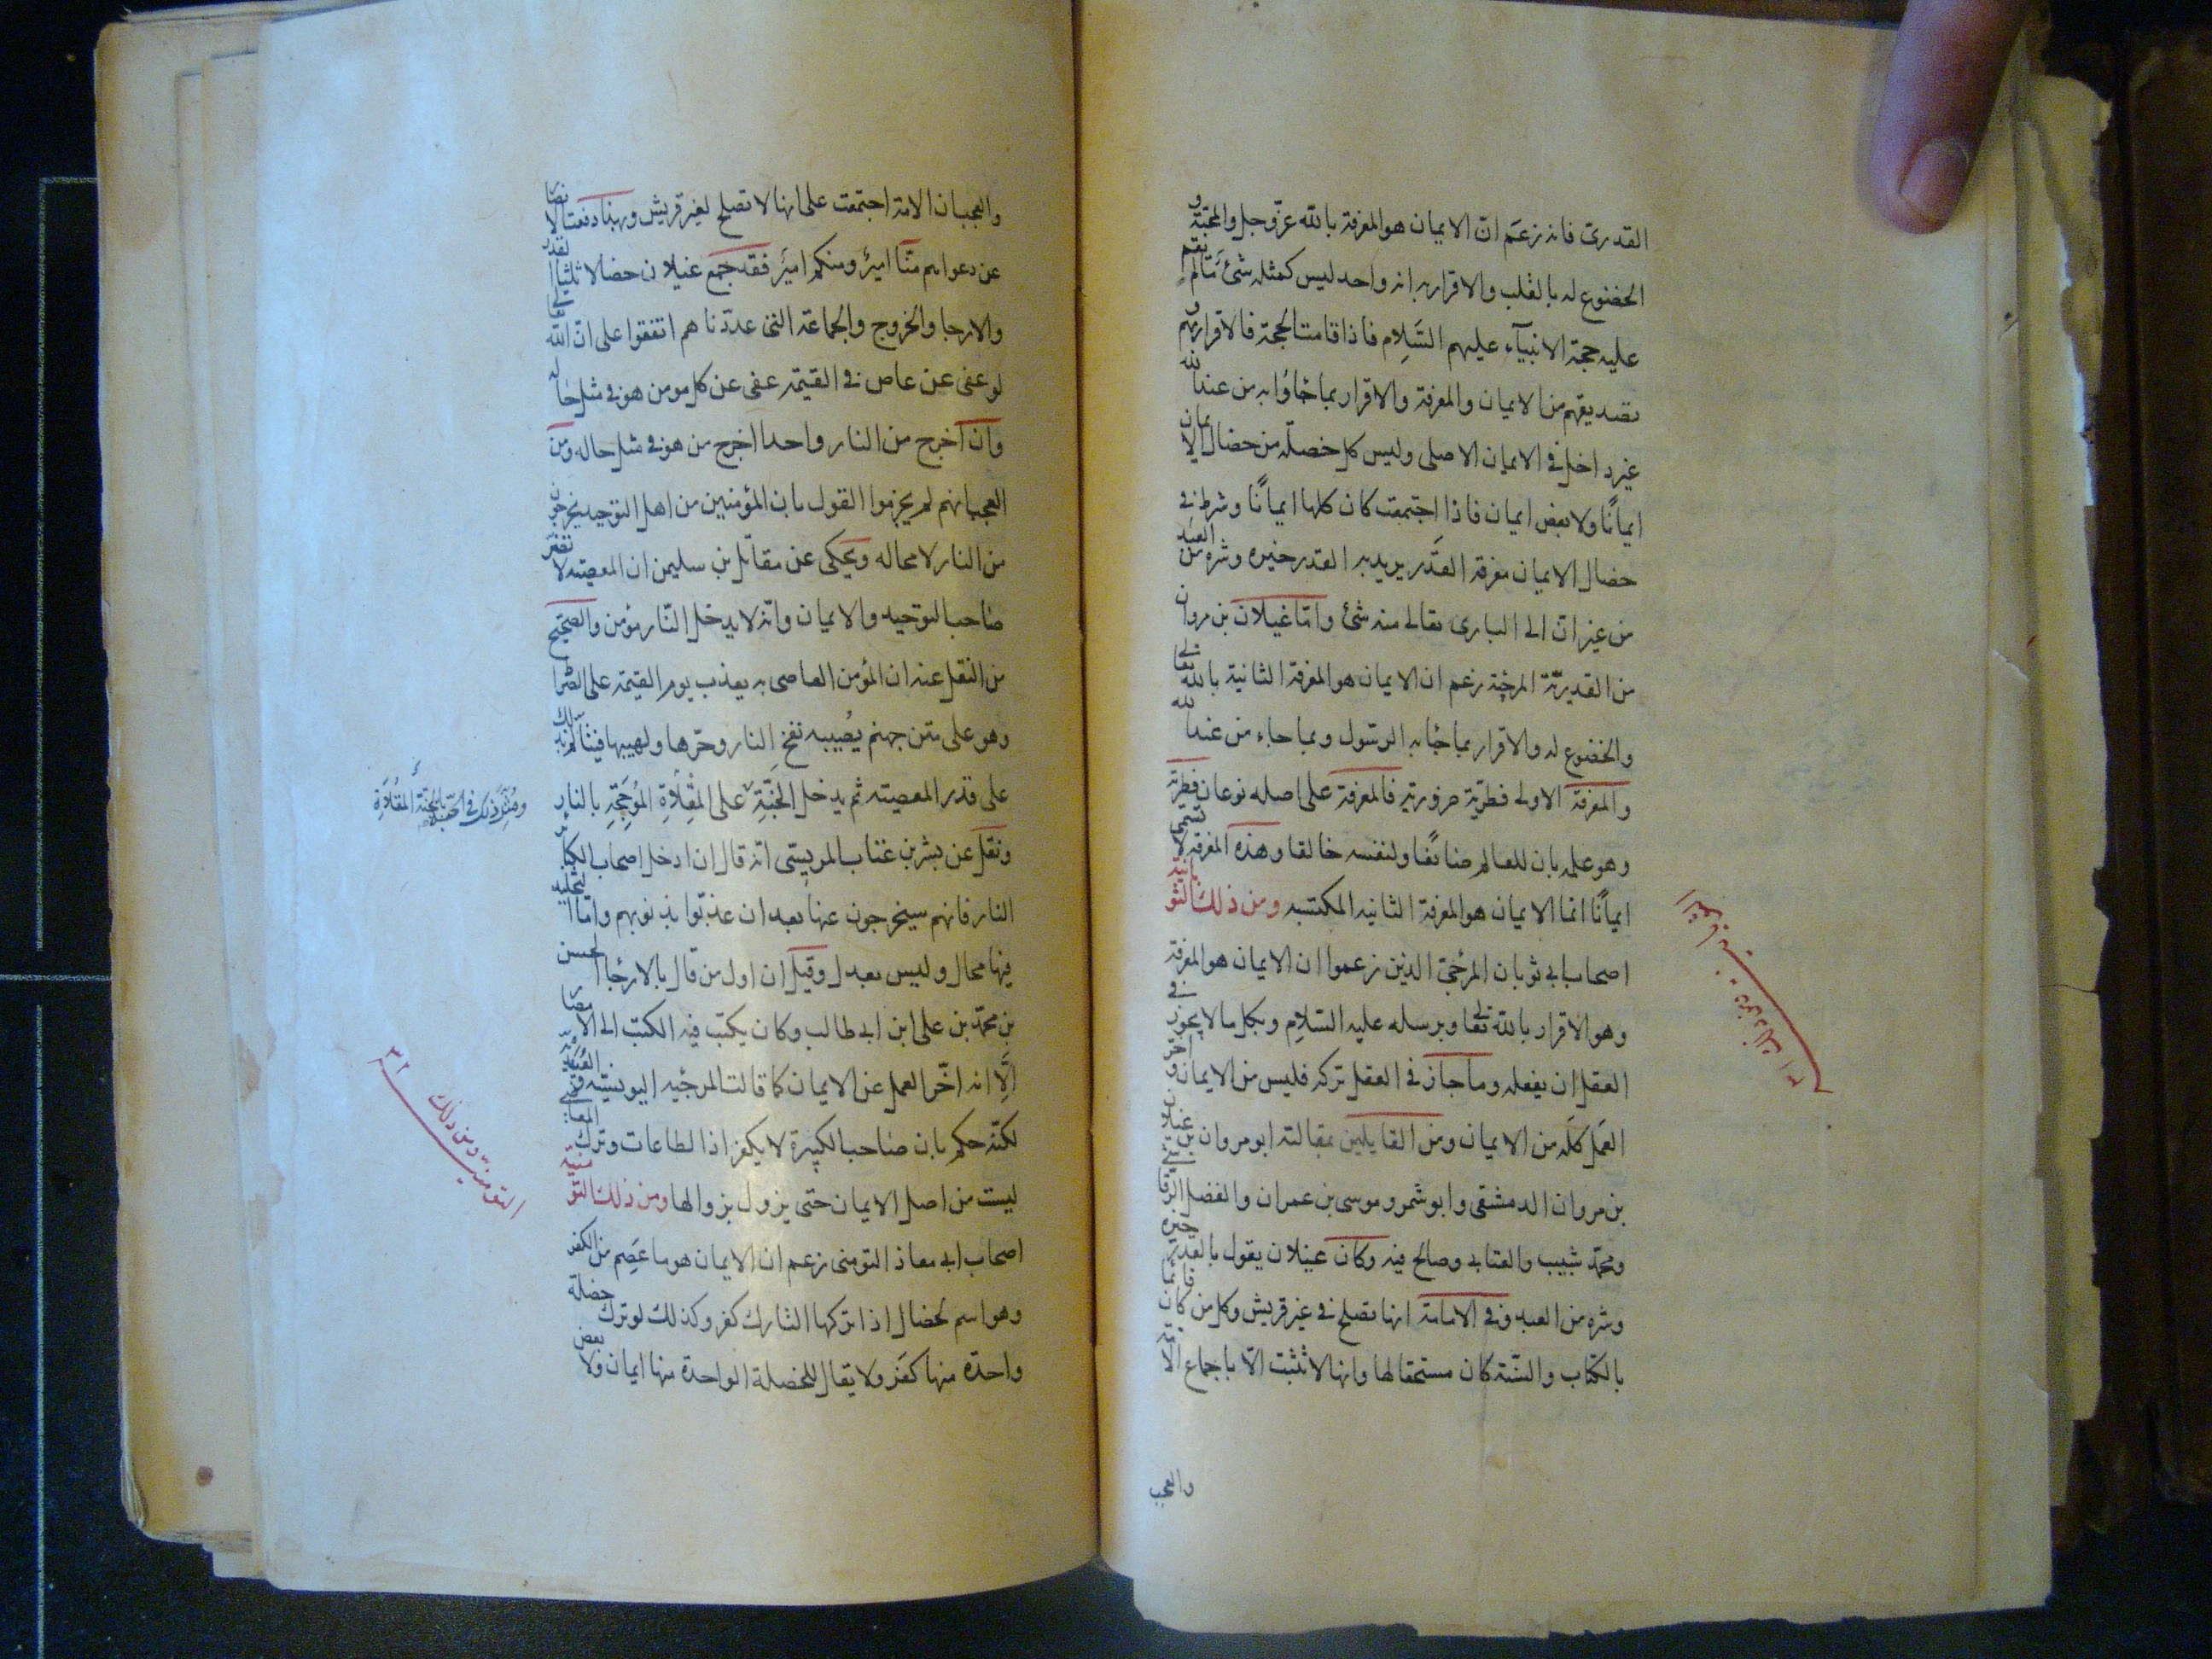 القدرى فانه زعم ان الايمان هو المعرفة بالله عزّوجل والمحبّة و
الخضوع له بالقلب والاقرار به انه واحد ليس كمثله شئ مالم يقم
عليه حجة الانبيآء عليهم السَّلام فاذا قامت الحجة فالاقرار بهم و
تصديقهم من الايمان والمعرفة والاقرار بما جاؤا به من عند الله
غير داخل فى الايمان الاصلى وليس كل خصلة من خصال الايمان
ايمانًا ولا بعض ايمان فاذا اجتمعت كان كلها ايمانًا وشرط فى
خصال الايمان معرفة القدر يريد به القدر خيره وشره من العبد
من غير ان الى البارى تعالى منه شئ وامّا غيلان بن مروان
من القدريّة المرجئة زعم ان الايمان هو المعرفة الثانية بالله تعالى
والخضوع له والاقرار بما جاء به الرسول وبما جاء من عند الله
والمعرفة الاولى فطرية ضرورية فالمعرفة على اصله نوعان فطرية
وهو علمه بان للعالم صانعًا ولنفسه خالقا وهذه المعرفة لا تسمى
ايمانًا انما الايمان هو المعرفة الثانيه المكتسبه ومن ذلك الثوبانية
اصحاب ابى ثوبان المرجئ الذين زعموا ان الايمان هو المعرفة
وهو الاقرار بالله تعالى وبرسله عليه السّلام وبكل ما لا يجوز فى
العقل ان يفعله وما جاز فى العقل تركه فليس من الايمان واخّر
العَمل كلّه من الايمان ومن القايلين بمقالته ابو مروان غيلان
بن مروان الدمشقى وابو شمر وموسى بن عمران والفضل الرقاشى
ومحمّد شبيب والعتابى وصالح فيه وكان غيلان يقول بالقدر خيره
وشره من العبد وفى الامامة انها تصلح فى غير قريش وكل من كان قائما
بالكتاب والسّنة كان مستحقا لها وانها لا تثبت الّا باجماع الامّة
والعجب
ومن ذلك
والعجب ان الامة اجتمعت على انها لا تصلح لغير قريش وبهذا دفعت الانصار
عن دعواهم منّا اميرٌ ومنكم اميرٌ فقد جمع غيلان خصالا ثلثا القدر
والارجا والخروج والجماعة التى عددنا هم اتفقوا على انّ الله تعالى
لو عفى عن عاص فى القيمة عفى عن كل مومن هو فى مثل حاله
وان اخرج من النار واحدا اخرج من هو فى مثل حاله ومن
العجب انهم لم يجزموا القول بان المؤمنين من اهل التوحيد يخرجون
من النار لا محاله ويحكى عن مقاتل بن سليمن ان المعصية لا تضرّ
صاحب التوحيد والايمان وانّه لا يدخل النّار مؤمن والصحيح
من النقل عنه ان المؤمن العاصى به يعذب يوم القيمة على الصراط
وهو على متن جهنم يُصيبه نفخ النار وحرّها ولهيبها فيتألم بذلك
على قدر المعصيته ثم يدخل الجنّة على المِقْلاَةِ المُوَجَّجَةِ بالنار
ونقل عن بشر بن غتاب المريسى انه قال ان ادخل اصحاب الكبائر
النار فانهم سيخرجون عنها بعد ان عذبّوا بذنوبهم وامّا التخليد
فيها محال وليس بعدل وقيل ان اول من قال بالارجا الحسن
بن محمّد بن على ابن ابى طالب وكان يكتب فيه الكتب الى الامصار
الّا انه اخّر العمل عن الايمان كما قالت المرجئيه اليونسيّه والعُبَيديّة
لكنّه حكم بان صاحب الكبيرة لا يكفر اذا لطاعات وترك المعاصى
ليست من اصل الايمان حتى يزول بزوالها ومن ذلك التومنية
اصحاب ابى معاذ التومنى زعم ان الايمان هو ما عَصِم من الكفر
وهو اسم لخصال اذا تركها التارك كفر وكذلك لو ترك خصلة
واحدة منها كفر ولا يقال للخصلة الواحدة منها ايمان ولا بعض
ومن ذلك
التومنية